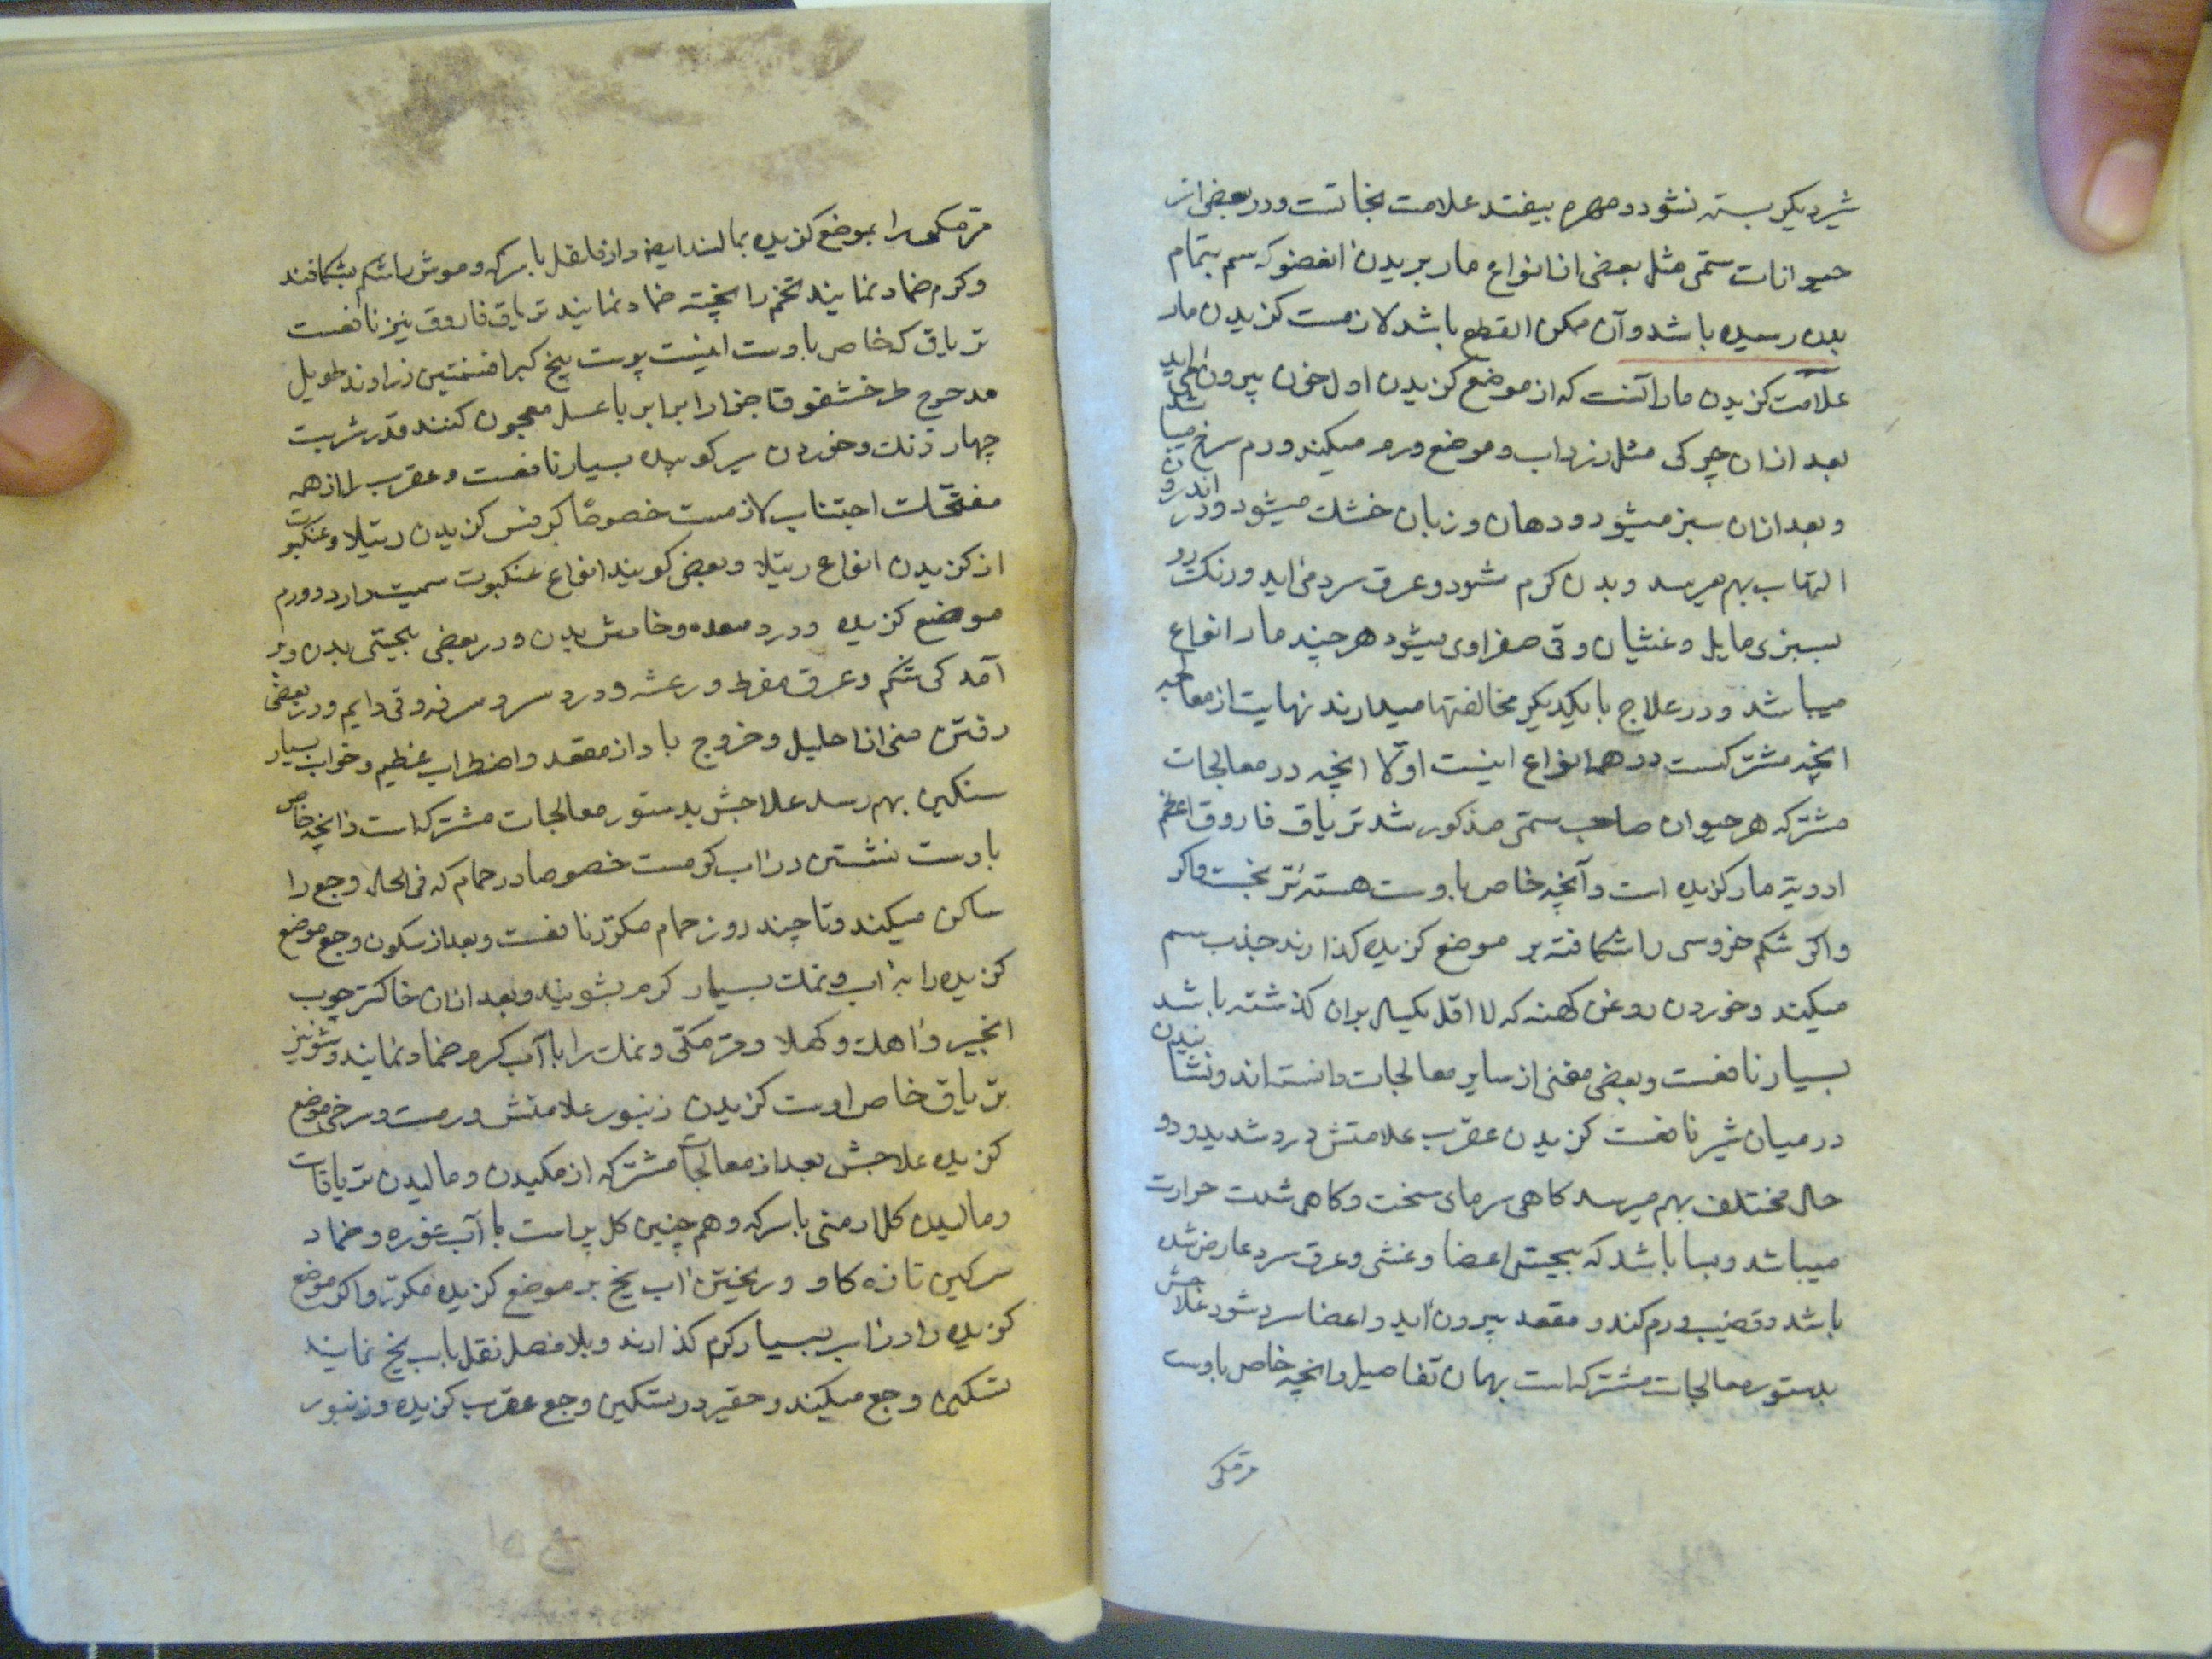 شیر دیگر بسته نشود و مهره بیفتد علامت نجاتست و در بعضی از
حیوانات سمّی مثل بعضی از انواع مار بریدن انعضو که سم بتمام
بدن رسیده باشد و آن ممکن القطع باشد لازمست گزیدن مار
علامت گزیدن مار آنست که از موضع گزیدن اول خون بیرون می آید
بعد از ان چرکی مثل زرداب و موضع ورم میکند ورم سرخ میباشد
و بعد از ان سبز میشود و دهان و زبان خشک میشود و در اندرون
التهاب بهم میرسد و بدن گرم شود و عرق سرد می اید و رنک رو
بسبزی مایل و غثیان و قی صفراوی میشود هر چند مار انواع
میباشد و در علاج با یکدیکر مخالفتها میدارند نهایت از معالجه
انچه مشترکست در همه انواع اینست اوّلا انچه در معالجات
مشترکه هر حیوان صاحب سمّی مذکور شد تریاق فاروق اعظم
ادویّه مار گزیده است و آنچه خاص باوست هسته ترنجست و اکر
و اکر شکم خروسی را شکافته بر موضع گزیده گذارند جذب سم
میکند و خوردن روغن کهنه که لا اقل یکسال بران گذشته باشد
بسیار نافعست و بعضی مغنی از سایر معالجات دانسته اند و نشانیدن
در میان شیر نافعست گزیدن عقرب علامتش درد شدید و دو
حال مختلف بهم میرسد کاهی سرمای سخت و کاهی شدت حرارت
میباشد و بسا باشد که بیحسی اعضا و غشی و عرق سرد عارض شده
باشد و قضیب ورم کند و مقعد بیرون اید و اعضا سرد شود علاجش
بدستور معالجات مشترکه است بهمان تفاصیل و انچه خاص باوست
مرّ مکی
مرّ مکی را بموضع گزیده بمالند ایضا واز فلفل با سرکه و موش را شکم بشکافند
و کرم ضماد نمایند تخم را پخته ضماد نمایند تریاق فاروق نیز نافعست
تریاق که خاص باوست اینست پوست بیخ کبر افسنتین زراوند طویل
مدحرج طرخشقوق اجزا را برابر با عسل معجون کنند قدر شربت
چهار دنک و خوردن سیر کوبیده بسیار نافعست و عقرب را از همه
مفتّحات اجتناب لازمست خصوصًا کرفس گزیدن رتیلا و عنکبوت
از گزیدن انواع رتیلا و بعضی گویند انواع عنکبوت سمیت دارد و ورم
موضع گزیده و درد معده و خارش بدن و در بعضی بیحسی بدن و بر
آمدگی شکم و عرق مفرط و رعشه و درد سر و سرفه و قی دایم و در بعضی
رفتن منی از احلیل و خروج باد از مقعد و اضطراب عظیم و خواب بسیار
سنگین بهم رسد علاجش بدستور معالجات مشترکه است و انچه خاص
باوست نشستن در اب گرمست خصوصا در حمام که فی الحال وجع را
ساکن میکند و تا چند روز حمام مکرّر نافعست و بعد از سکون وجع موضع
گزیده را به اب و نمک بسیار کرم بشویند و بعد از ان خاکستر چوب
انجیر و اهک و کهلا و مرّ مکّی و نمک را با آب گرم ضماد نمایند و شونیز
تریاق خاص اوست گزیدن زنبور علامتش ورمست و سرخی موضع
گزیده علاجش بعد از معالجات مشترکه از مکیدن و مالیدن تریاقات
و مالیدن گل ارمنی با سرکه و هم چنین گل پراست با آب غوره و ضماد
سرکین تازه کاو و ریختن اب یخ بر موضع گزیده مکرّر و اکر موضع
گزیده را در اب بسیار گرم گذارند و بلا فصل نقل باب یخ نمایند
تسکین وجع میکند و حقیر در تسکین وجع عقرب گزیده و زنبور